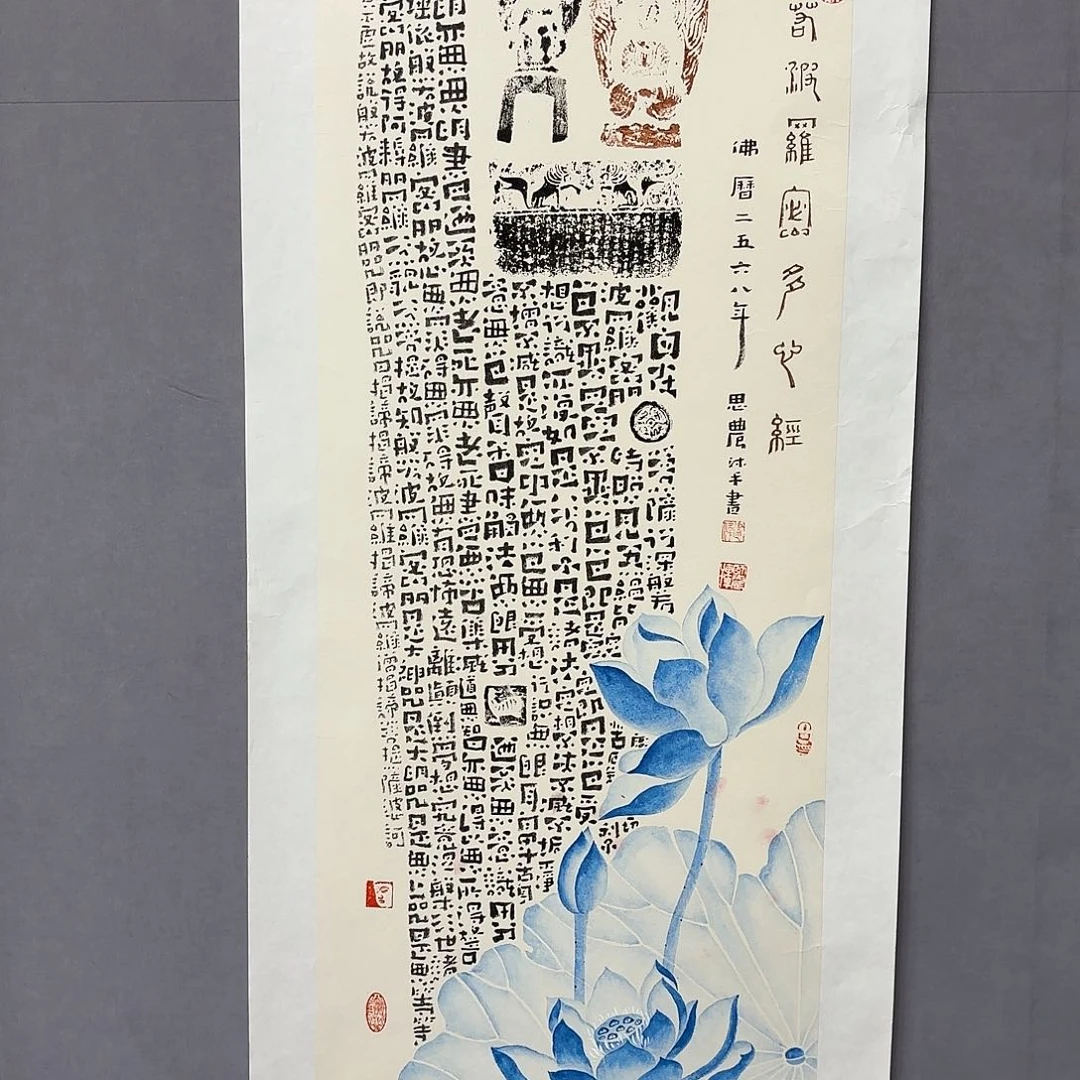 若波羅密多心經
佛曆二五六八年 思農沐手書
觀自在菩薩行深般若
波羅密多時照見五蘊
色不異空空不異色色即是空空即是色受
想行識亦復如是舍利子是諸法空相不生不滅不垢不淨
不增不減是故空中無色無受想行識無眼耳鼻舌身
意無色聲香味觸法無眼界乃至無意識界
明亦無無明盡乃至無老死亦無老死盡無苦集滅道無智亦無得以無所得故菩
埵依般若波羅密多故心無罣礙無罣礙故無有恐怖遠離顛倒夢想究竟涅槃三世諸
密多故得阿耨多羅三藐三菩提故知般若波羅密多是大神咒是大明咒是無上咒是無等等
不虛故說般若波羅密多咒即說咒曰揭諦揭諦波羅揭諦波羅僧揭諦菩提薩婆訶